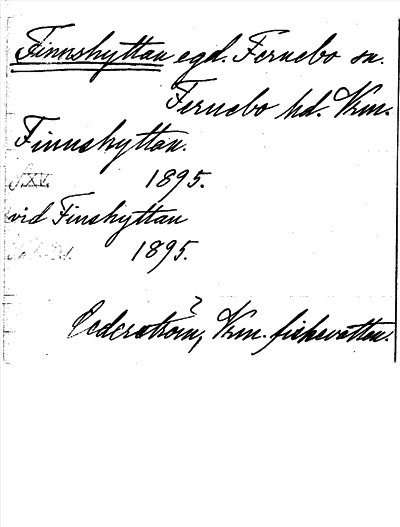 Finnshyttan egd. Fernebo sn.
Fernebo hd. Vrm.
Finnshyttan.
1895.
vid Finshyttan
1895.
?
Cederström, Vrm. fiskevatten.